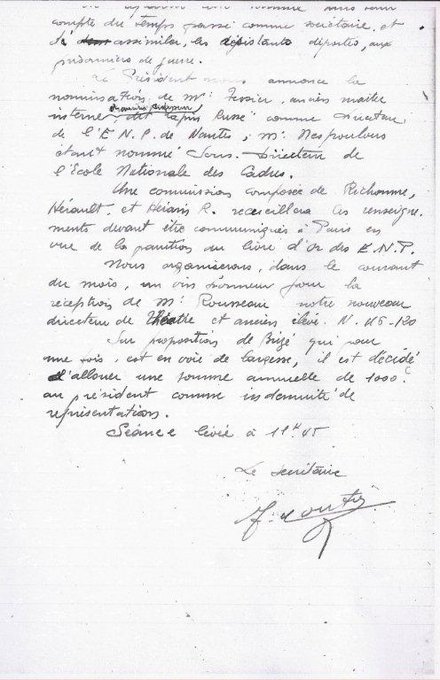 compte du temps passé comme secrétaire, et
assimiler les assistants déportés, aux
prisonniers de guerre.
Le Président nous annonce la
nomination de Mr Tessier, ancien maître
interne, dit "lapin russe" comme Directeur
de l'E.N.P. de Nantes, Mr Despoulous
étant nommé Sous-Directeur de
l'Ecole Nationale des Cadres.
Une commission composée de Richomme,
Hérault, et Hérain R. recueillera les renseigne-
ments devant être communiqués à Paris en
vue de la parution du livre d'or des E.N.P.
Nous organiserons, dans le courant
du mois, un vin d'honneur pour la
réception de Mr Rousseau notre nouveau
directeur de Théâtre et ancien élève. N. 115-120
Sur proposition de Brizé qui pour
une fois, est en voie de largesse, il est décidé
d'allouer une somme annuelle de 1000 f
au président comme indemnité de
représentations.
Séance levée à 11h 45
Le secrétaire